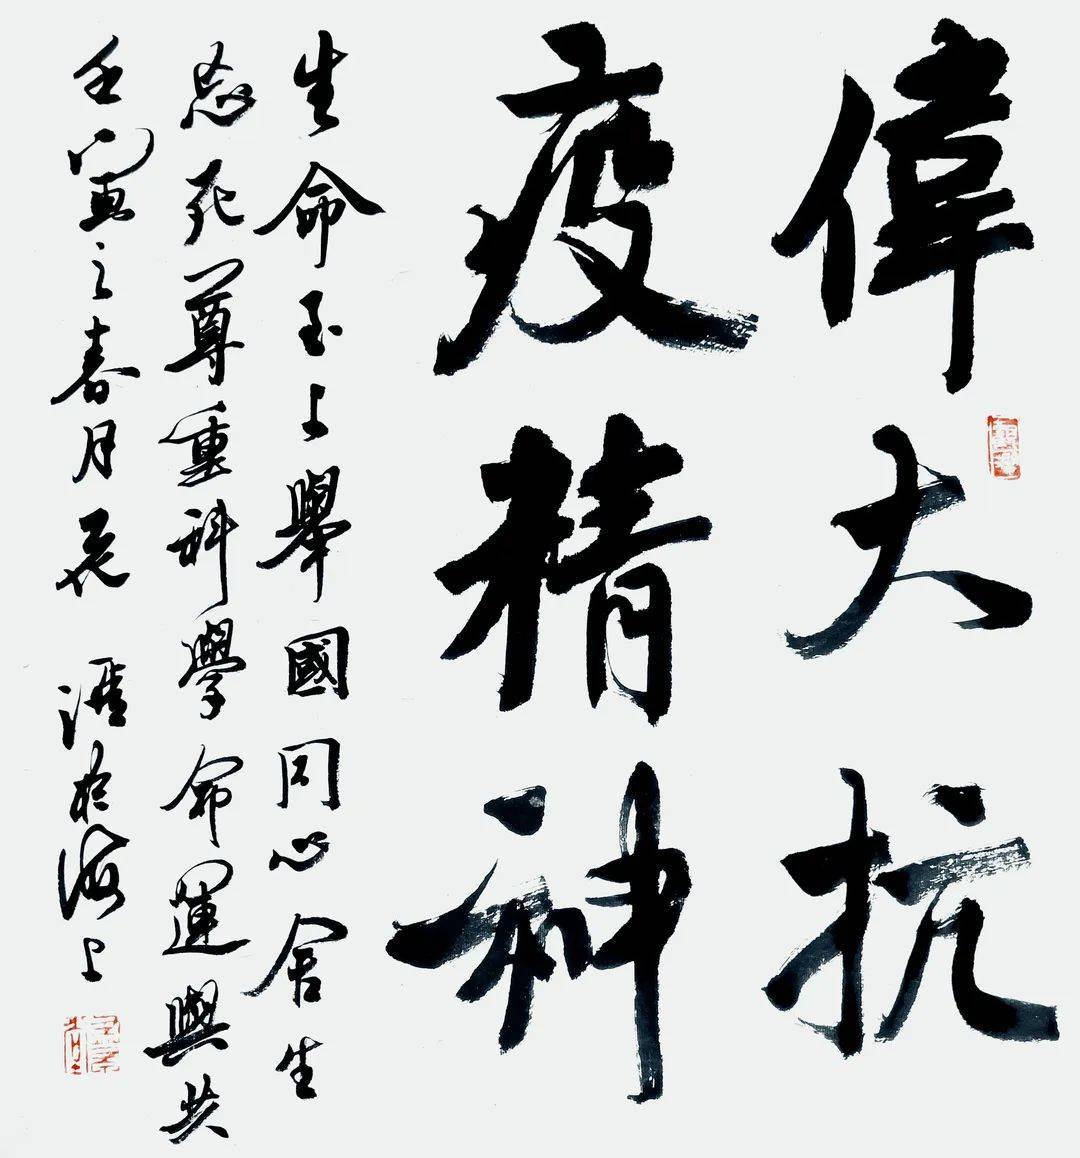 偉大抗
疫精神
生命至上舉國同心舍生
忘死尊重科學命運與共
壬寅之春月 海上